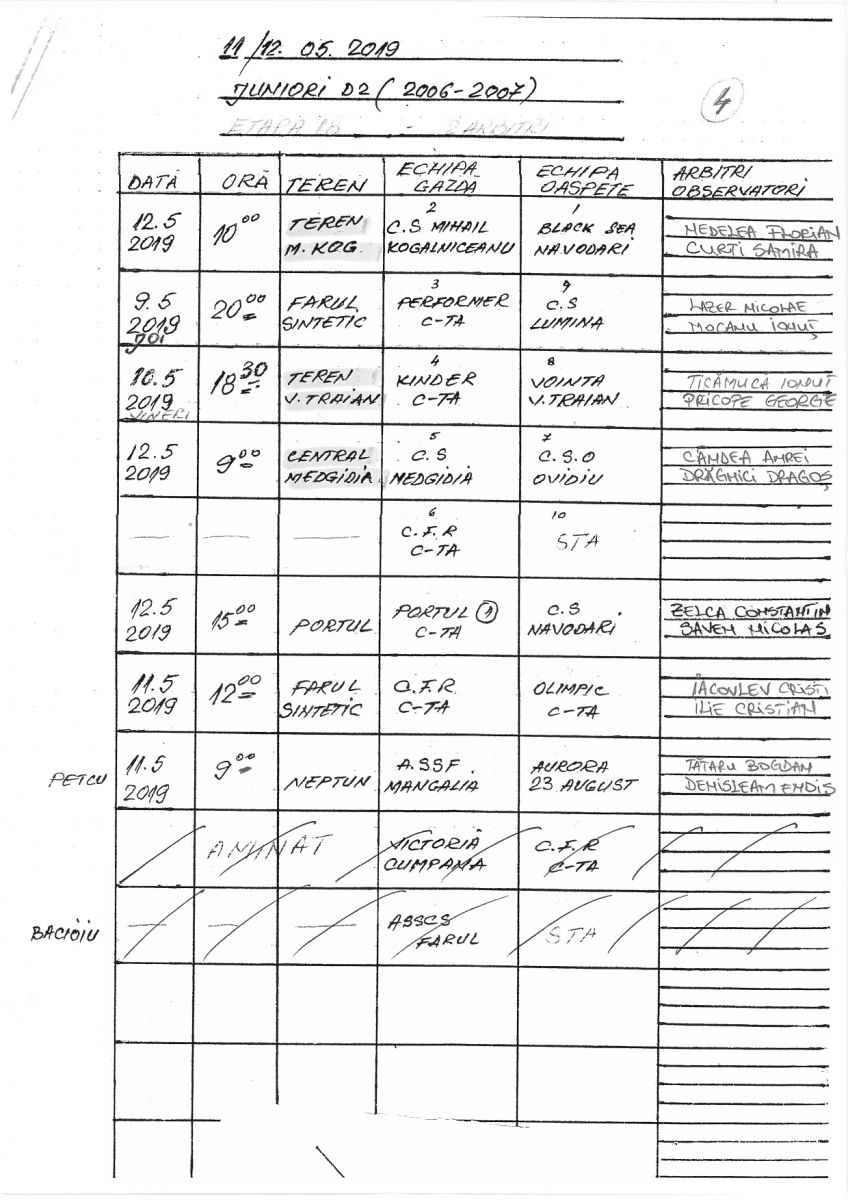 11/12. 05. 2019
JUNIORI D2 ( 2006-2007)
4
ETAPA 18 - 2 ARBITRI
DATĂ ORĂ TEREN ECHIPA GAZDA ECHIPA OASPETE ARBITRI OBSERVATORI
2 1
12.5 2019 10⁰⁰ TEREN M. KOG. C.S MIHAIL KOGALNICEANU BLACK SEA NAVODARI NEDELEA FLORIAN CURTI SAMIRA
3 9
9.5 2019 JOI 20⁰⁰ FARUL SINTETIC PERFORMER C-TA C.S LUMINA LAZER NICOLAE MOCANU IONUȚ
4 8
10.5 2019 VINERI 18³⁰ TEREN V. TRAIAN KINDER C-TA VOINTA V.TRAIAN TICĂMUCĂ IONUT PRICOPE GEORGE
5 7
12.5 2019 9⁰⁰ CENTRAL MEDGIDIA C.S MEDGIDIA C.S.O OVIDIU CÂNDEA ANREI DRĂGHICI DRAGOȘ
6 10
— — — C.F.R C-TA STA
12.5 2019 15⁰⁰ PORTUL PORTUL 1 C-TA C.S NAVODARI ZELCA CONSTANTIN SAVEM NICOLAS
11.5 2019 12⁰⁰ FARUL SINTETIC C.F.R. C-TA OLIMPIC C-TA IACOVLEV CRISTI ILIE CRISTIAN
PETCU 11.5 2019 9⁰⁰ NEPTUN A.SSF. MANGALIA AURORA 23 AUGUST TĂTARU BOGDAN DEMISLEAM ENDIS
AMINAT VICTORIA CUMPANA C.F.R C-TA
BACIOIU — — — ASSCS FARUL STA